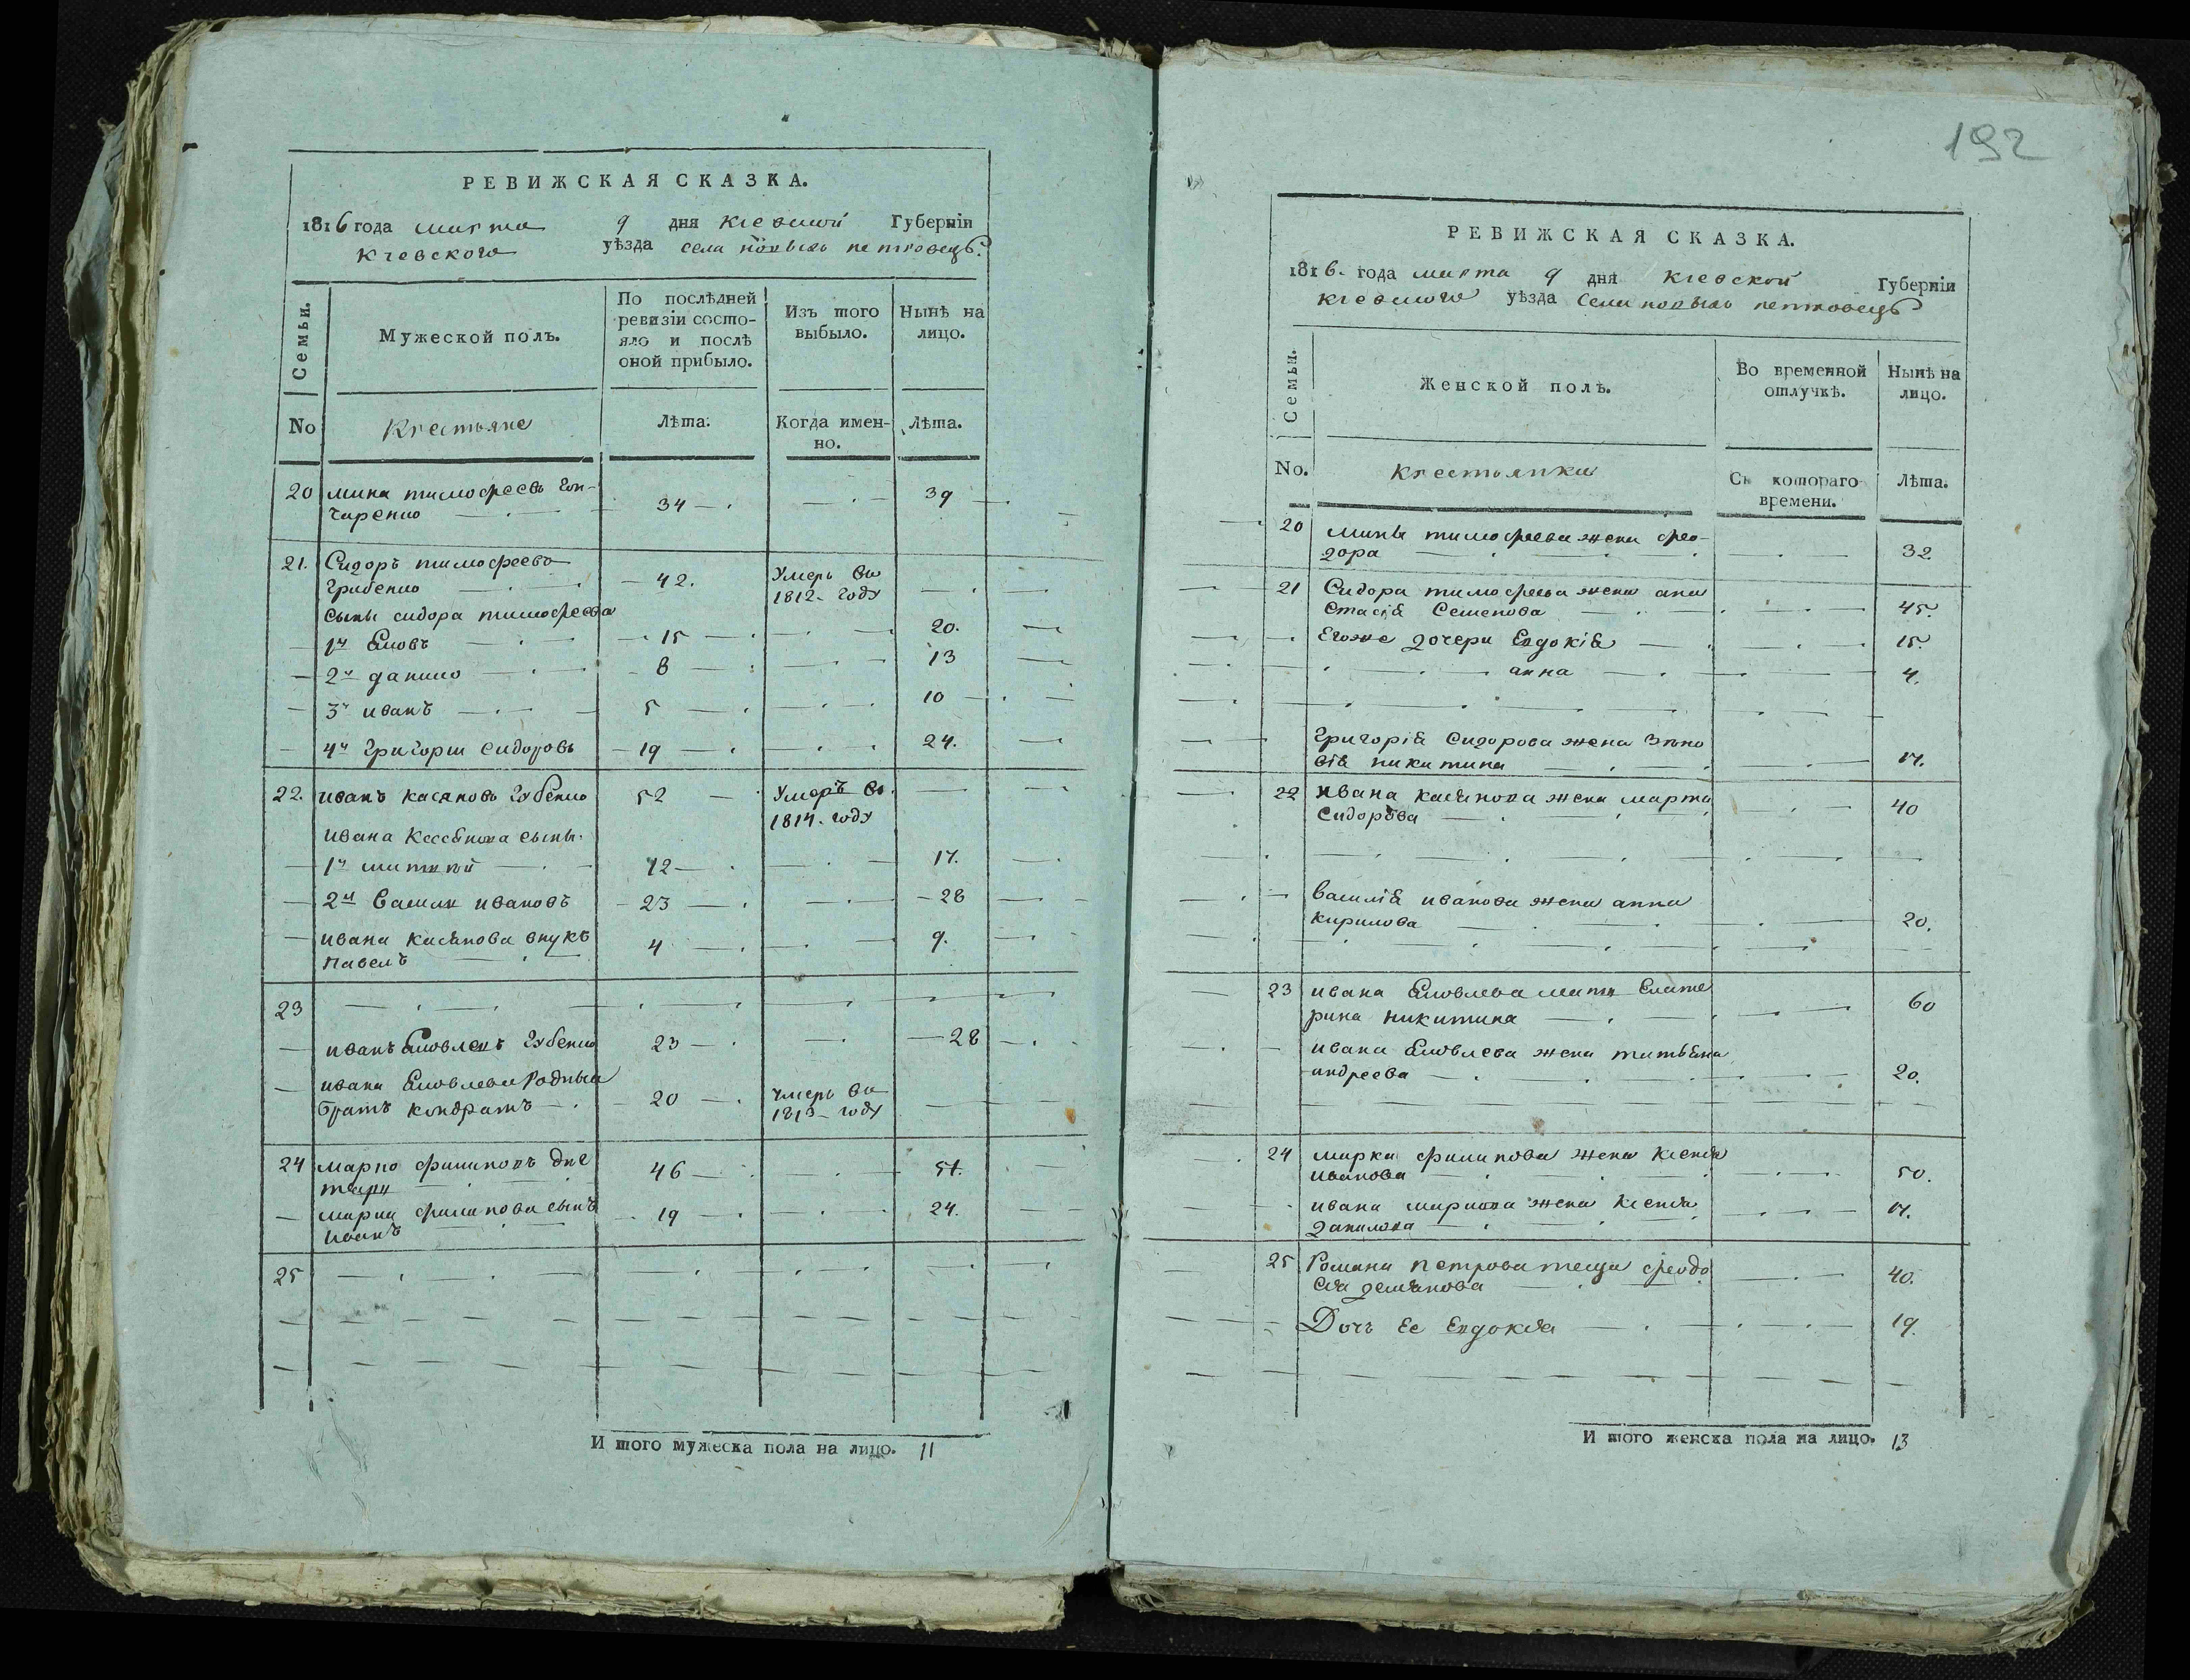 РЕВИЖСКАЯ СКАЗКА.
1816 года марта 9 дня Киевской Губерніи
Киевского уѣзда села новыхъ петровецъ.
Семьи.
Мужеской полъ.
По послѣдней
ревизіи состо-
яло и послѣ
оной прибыло.
Изъ того
выбыло.
Нынѣ на
лицо.
No
Крестьяне
Лѣта.
Когда имен-
но.
Лѣта.
20 мина тимофеевъ гон-
чаренко 34 39
21. Сидоръ тимофеевъ
грибенко 42. Умеръ въ
1812 году
сыны сидора тимофеева
1й Яковъ 15 20.
2й данило 8 13
3й иванъ 5 10
4й григории сидоровъ 19 24.
22. иванъ касяновъ губенко 52 Умеръ въ
1814 году
ивана касянова сыны
1й митрий 12 17.
2й Васили ивановъ 23 28
ивана касянова внукъ
павелъ 4 9.
23
иванъ Яковлевъ губенко 23 28
ивана Яковлева родный
братъ кондратъ 20 умеръ въ
1813 году
24 марко филиповъ
46 51.
марка филипова сынъ
иванъ 19 24.
25
И того мужеска пола на лицо. 11
192
РЕВИЖСКАЯ СКАЗКА.
1816. года марта 9 дня Киевской Губерніи
Киевского уѣзда села новыхъ петровецъ
Семьи.
Женской полъ.
Во временной
отлучкѣ.
Нынѣ на
лицо.
No.
Крестьянки
Съ котораго
времени.
Лѣта.
20 мины тимофеева жена фео-
дора 32
21 Сидора тимофеева жена ана
стасія Семенова 45.
Егоже дочери Евдокія 15.
анна 4.
григорія Сидорова жена Зѣно
вія никитина 17.
22 ивана касянова жена марта
Сидорова 40
василія иванова жена анна
кирилова 20.
23 ивана Яковлева мать Екате
рина никитина 60
ивана Яковлева жена татьяна
андреева 20.
24 марка филипова жена Ксенія
иванова 50.
ивана маркова жена Ксенія
данилова 17.
25 Романа петрова теща феодо
сія демянова 40.
Дочь Ее Евдокія 19.
И того женска пола на лицо. 13